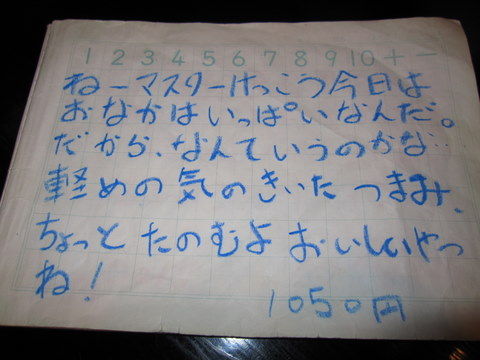 1 2 3 4 5 6 7 8 9 10 + -
ねーマスターけっこう今日は
おなかはいっぱいなんだ。
だから、なんていうのかな…
軽めの気のきいたつまみ、
ちょっとたのむよおいしいやつ
ね！
1050円